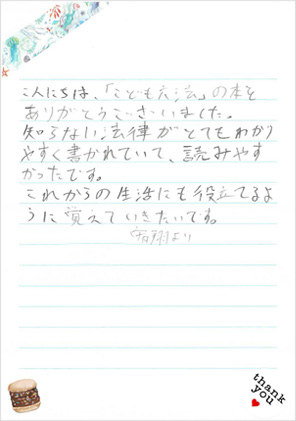 こんにちは、「こども六法」の本を
ありがとうございました。
知らない法律がとてもわかり
やすく書かれていて、読みやす
かったです。
これからの生活にも役立てるよ
うに覚えていきたいです。
翔より
thank
you